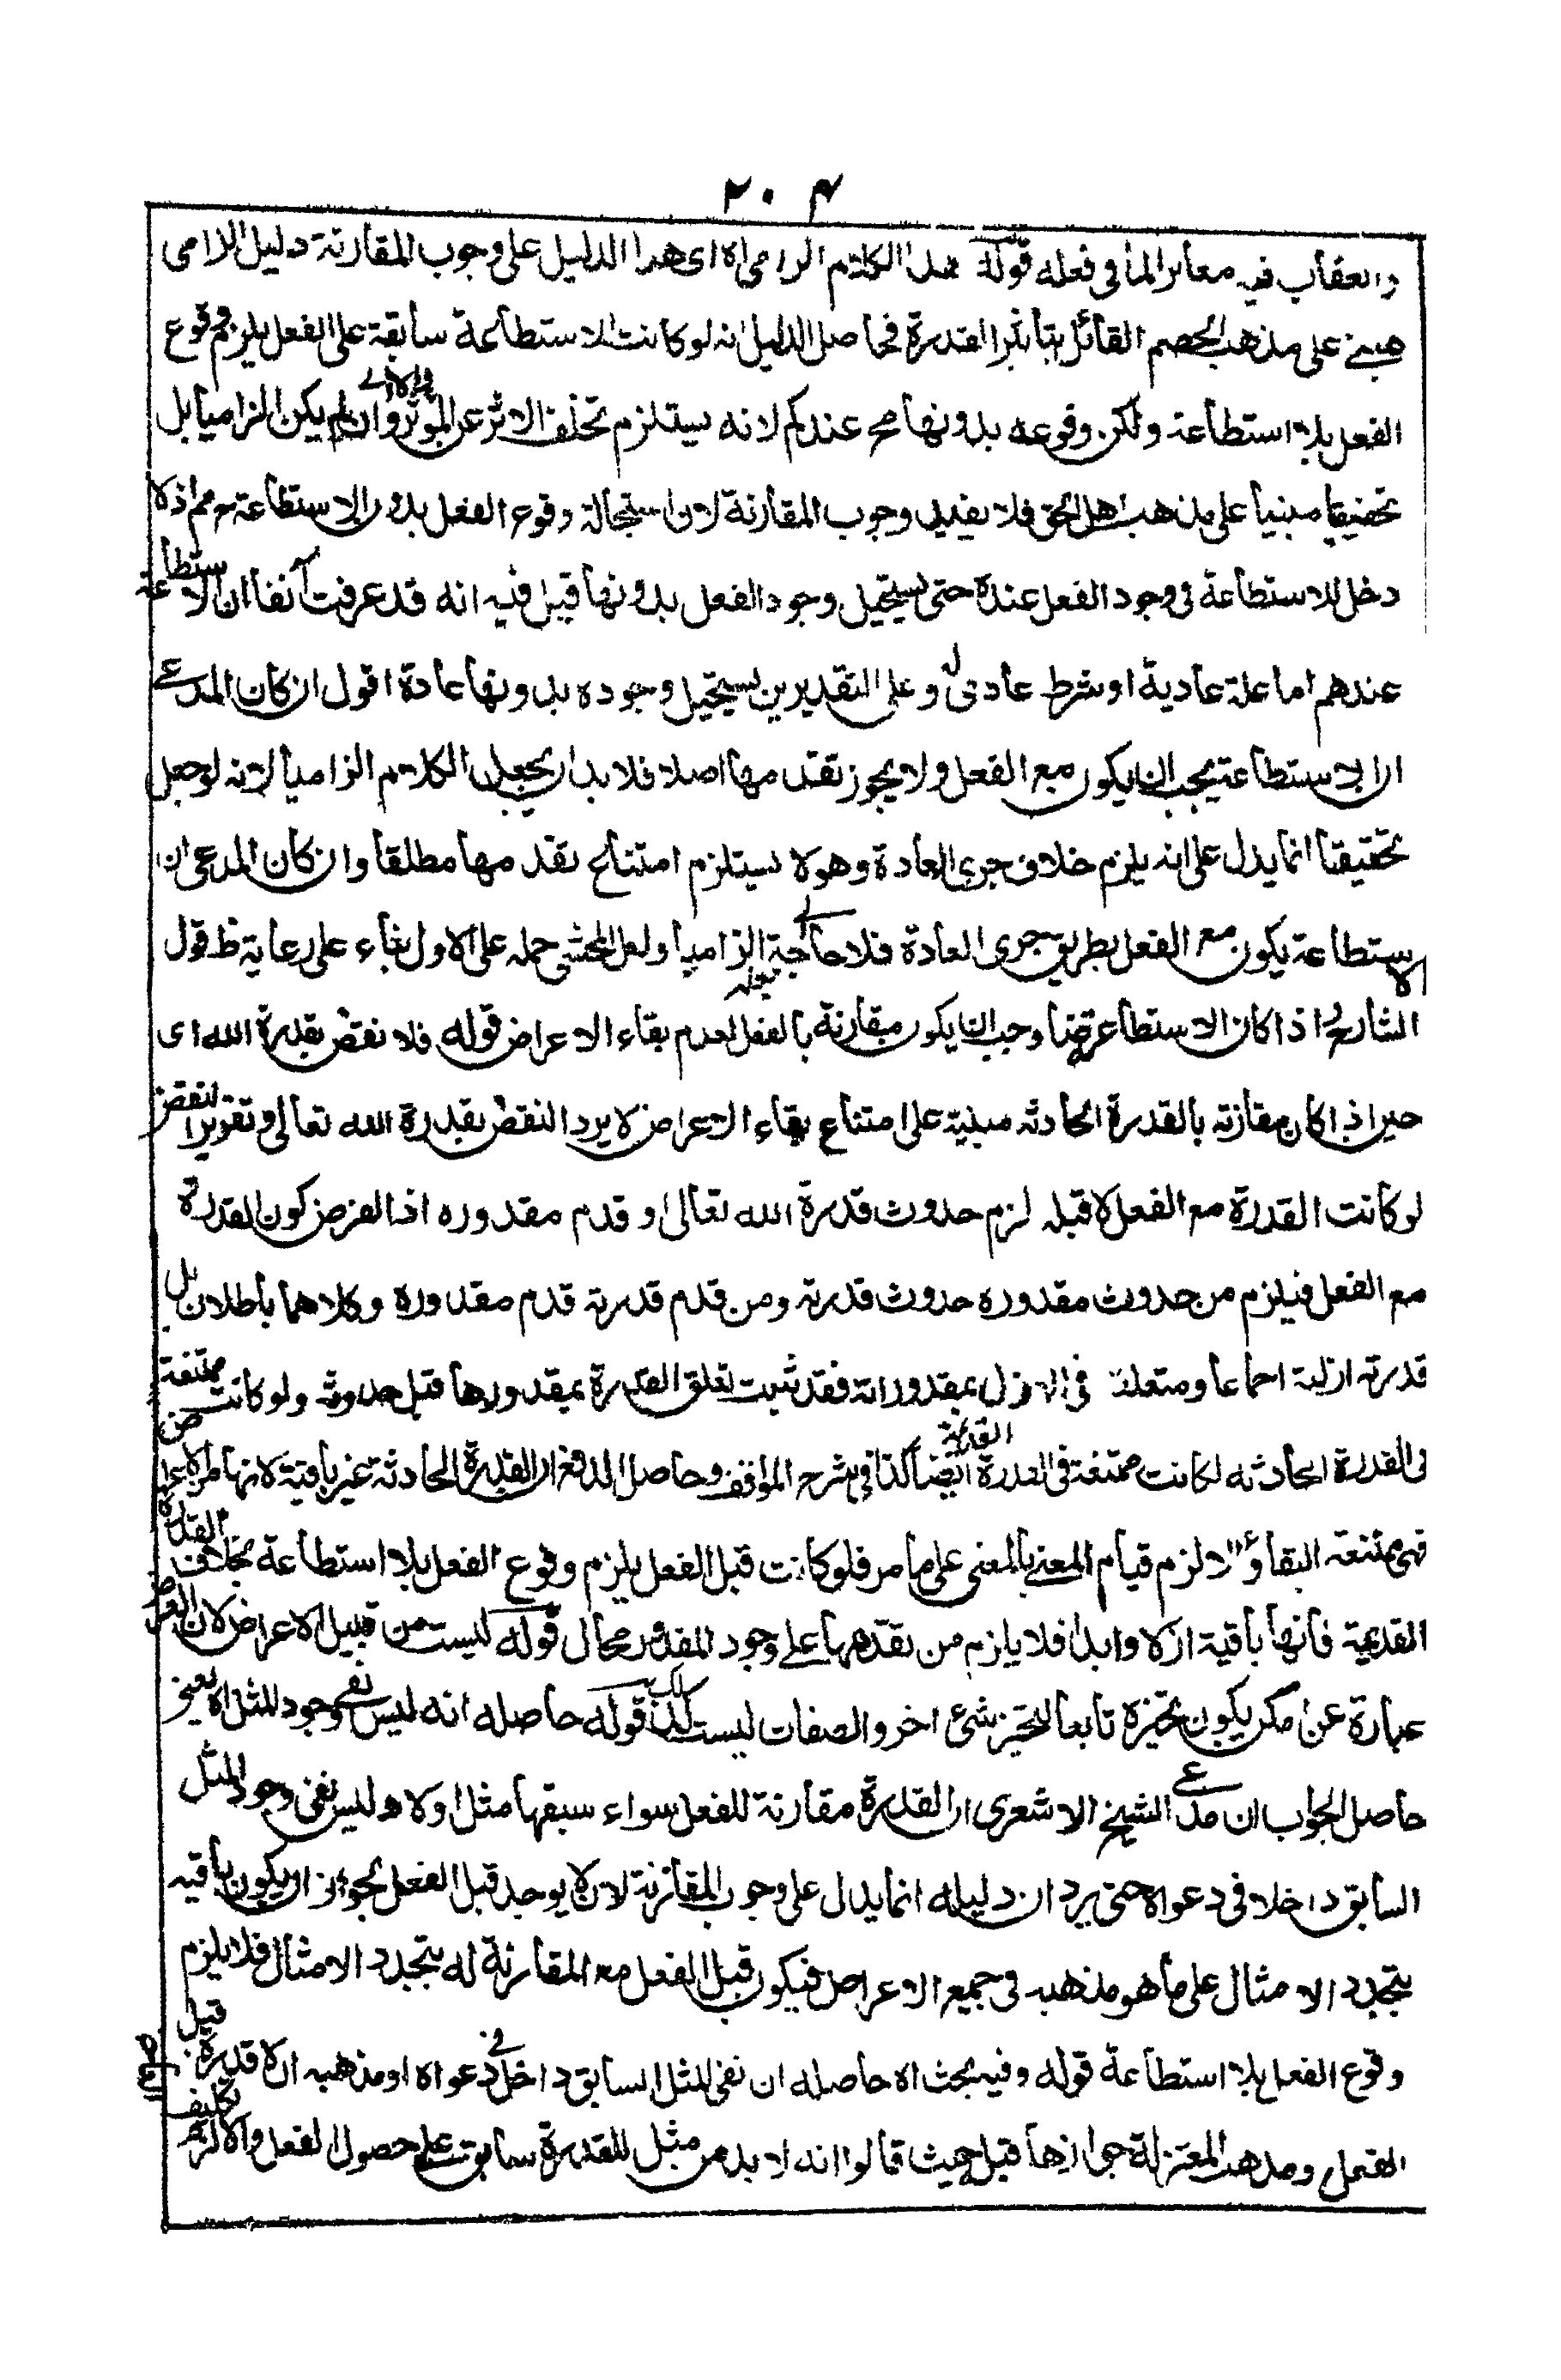 ٢٠٤
والعقاب فيه مغاير لما في فعله قوله هذا الكلام الزامي اه اي هذا الدليل على وجوب المقارنة دليل الزامي
مبني على مذهب الخصم القائل بتاثير القدرة فحاصل الدليل انه لو كانت الاستطاعة سابقة على الفعل يلزم وقوع
الفعل بلا استطاعة ولكن وقوعه بدونها مح عندكم لانه يستلزم تخلف الاثر عن الموثر والا اي وان لم يكن الزاميا بل
تحقيقيا مبنيا على مذهب اهل الحق فلا يفيد وجوب المقارنة لان استحالة وقوع الفعل بدون الاستطاعة مم اذ لا
دخل للاستطاعة في وجود الفعل عنده حتى يستحيل وجود الفعل بدونها قيل فيه انه قد عرفت آنفا ان الاستطاعة
عندهم اما علة عادية او شرط عادي له وعلى التقديرين يستحيل وجوده بدونها عادة اقول ان كان المدعى
ان الاستطاعة يجب ان يكون مع الفعل ولا يجوز تقدمها اصلا فلا بد ان يجعل الكلام الزاميا لانه لو جعل
تحقيقيا انما يدل على انه يلزم خلاف جري العادة وهو لا يستلزم امتناع تقدمها مطلقا وان كان المدعى ان
الاستطاعة يكون مع الفعل بطريق جري العادة فلا حاجة الى جعله الزاميا ولعل المحشي حمله على الاول بناء على رعاية ظ قول
الشارح اذا كان الاستطاعة عرضا وجب ان يكون مقارنة بالفعل لعدم بقاء الاعراض قوله فلا نقض بقدرة الله اي
حين اذ كان مقارنة بالقدرة الحادثه مبنية على امتناع بقاء الاعراض لا يرد النقض بقدرة الله تعالى وتقرير النقض
لو كانت القدرة مع الفعل لا قبله لزم حدوث قدرة الله تعالى او قدم مقدوره اذ الفرض كون القدرة
مع الفعل فيلزم من حدوث مقدوره حدوث قدرته ومن قدم قدرته قدم مقدوره وكلاهما باطلان بل
قدرته ازلية اجماعا ومتعلقة في الازل بمقدوراته فقد ثبت تعلق القدرة بمقدورها قبل حدوثه ولو كانت ممتنعة
في القدرة الحادثه لكانت ممتنعة في القدرة القديمة ايضا كذا في شرح المواقف وحاصل الدفع ان القدرة الحادثة غير باقية لانها من الاعراض
فهي ممتنعة البقاء والا لزم قيام المعنى بالمعنى على ما مر فلو كانت قبل الفعل يلزم وقوع الفعل بلا استطاعة بخلاف القدرة
القديمة فانها باقية ازلا وابدا فلا يلزم من تقدمها على وجود المقدور محال قوله ليست من قبيل الاعراض لان العرض
عبارة عن ممكن يكون تحيزه تابعا لتحيز شئ اخر والصفات ليست كذلك قوله حاصله انه ليس نفي وجود المثل اه يعني
حاصل الجواب ان مدعى الشيخ الاشعري ان القدرة مقارنة للفعل سواء سبقها مثل اولا وليس نفي وجود المثل
السابق داخلا في دعواه حتى يرد ان دليله انما يدل على وجوب المقارنة لان لا يوجد قبل الفعل لجواز ان يكون باقيه
بتجدد الامثال على ما هو مذهبه في جميع الاعراض فيكون قبل الفعل مع المقارنة له بتجدد الامثال فلا يلزم
وقوع الفعل بلا استطاعة قوله وفيه بحث اه حاصله ان نفي المثل السابق داخل في دعواه او مذهبه ان لا قدرة قبل
الفعل ومذهب المعتزلة جوازها قبل حيث قالوا انه لا بد من مثل للقدرة سابق على حصول الفعل والا لزم تكليف